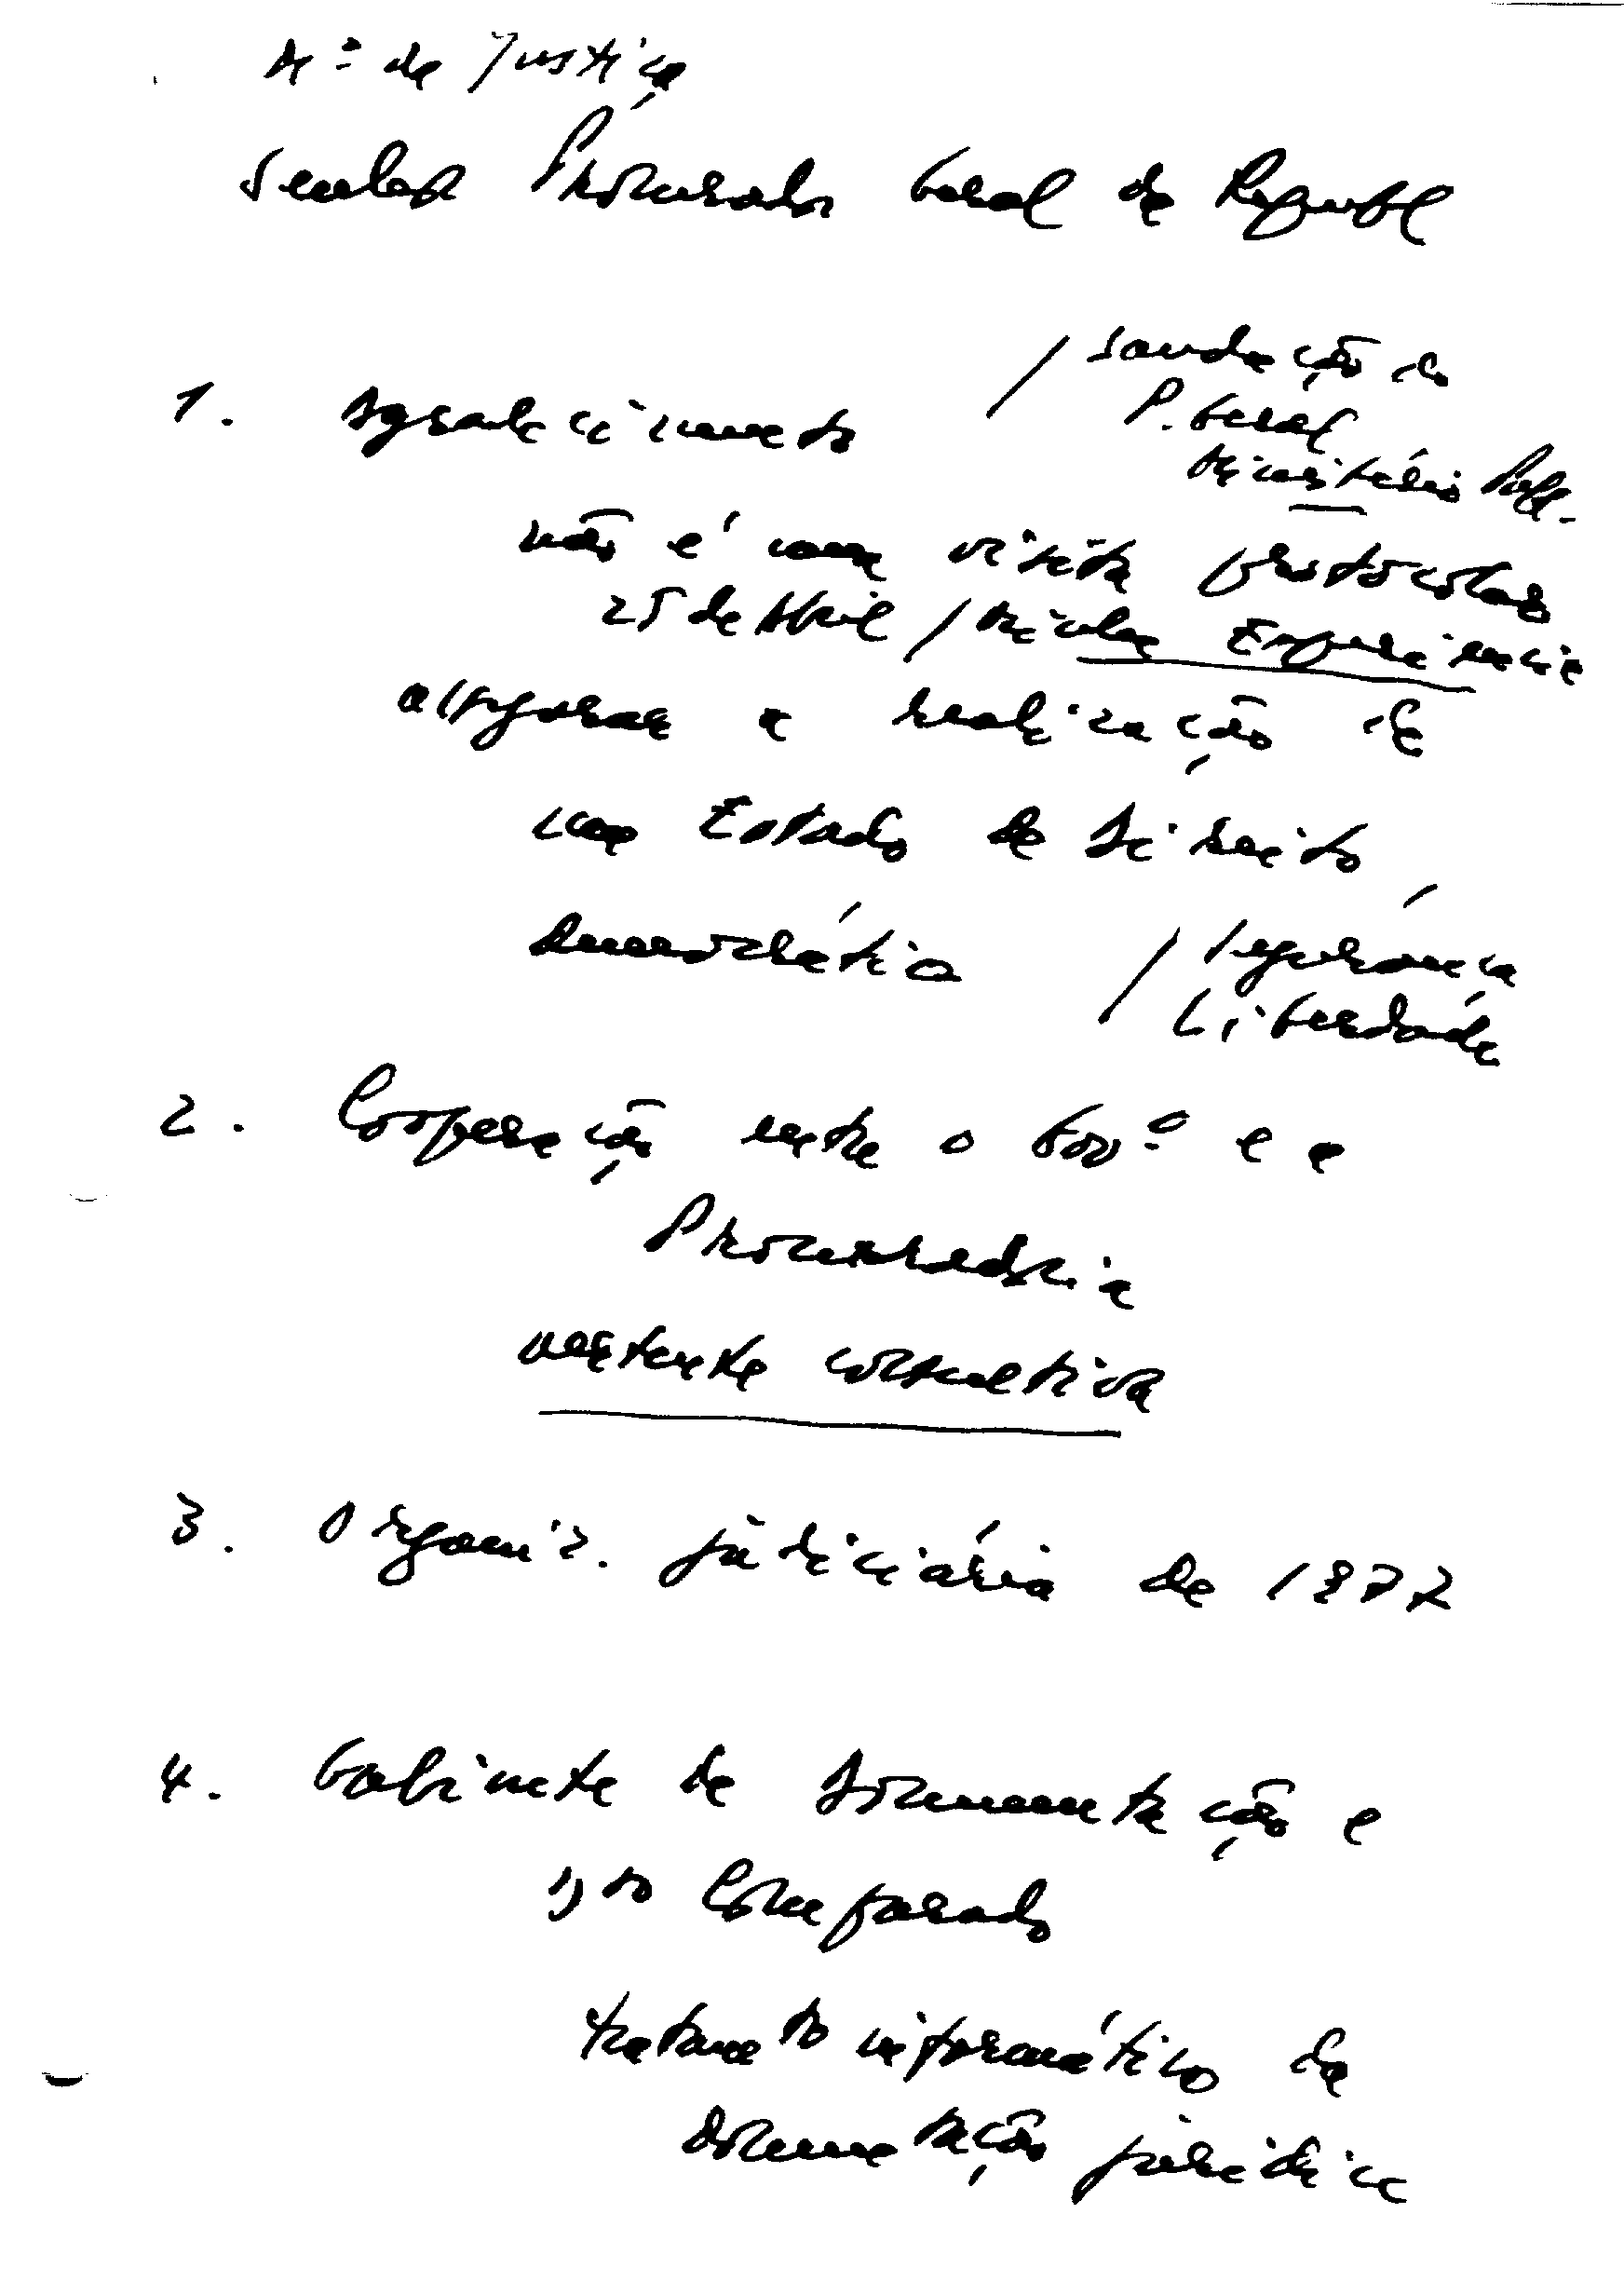 Mº da Justiça
Senhor Procurador Geral da Repúbl
1. Agradecimento / saudação ao
P. Geral
Ministério Públ.
não é uma visita protocolar
25 de Abril / minha Experiência
assegurar a realização de
um Estado de Direito
democrático / segurança
Liberdade
2. Cooperação entre o Govº e a
Procuradoria
vertente consultiva
3. Organiz. judiciária de 1977
4. Gabinete de Documentação e
Dto Comparado
tratamento informático da
documentação jurídica